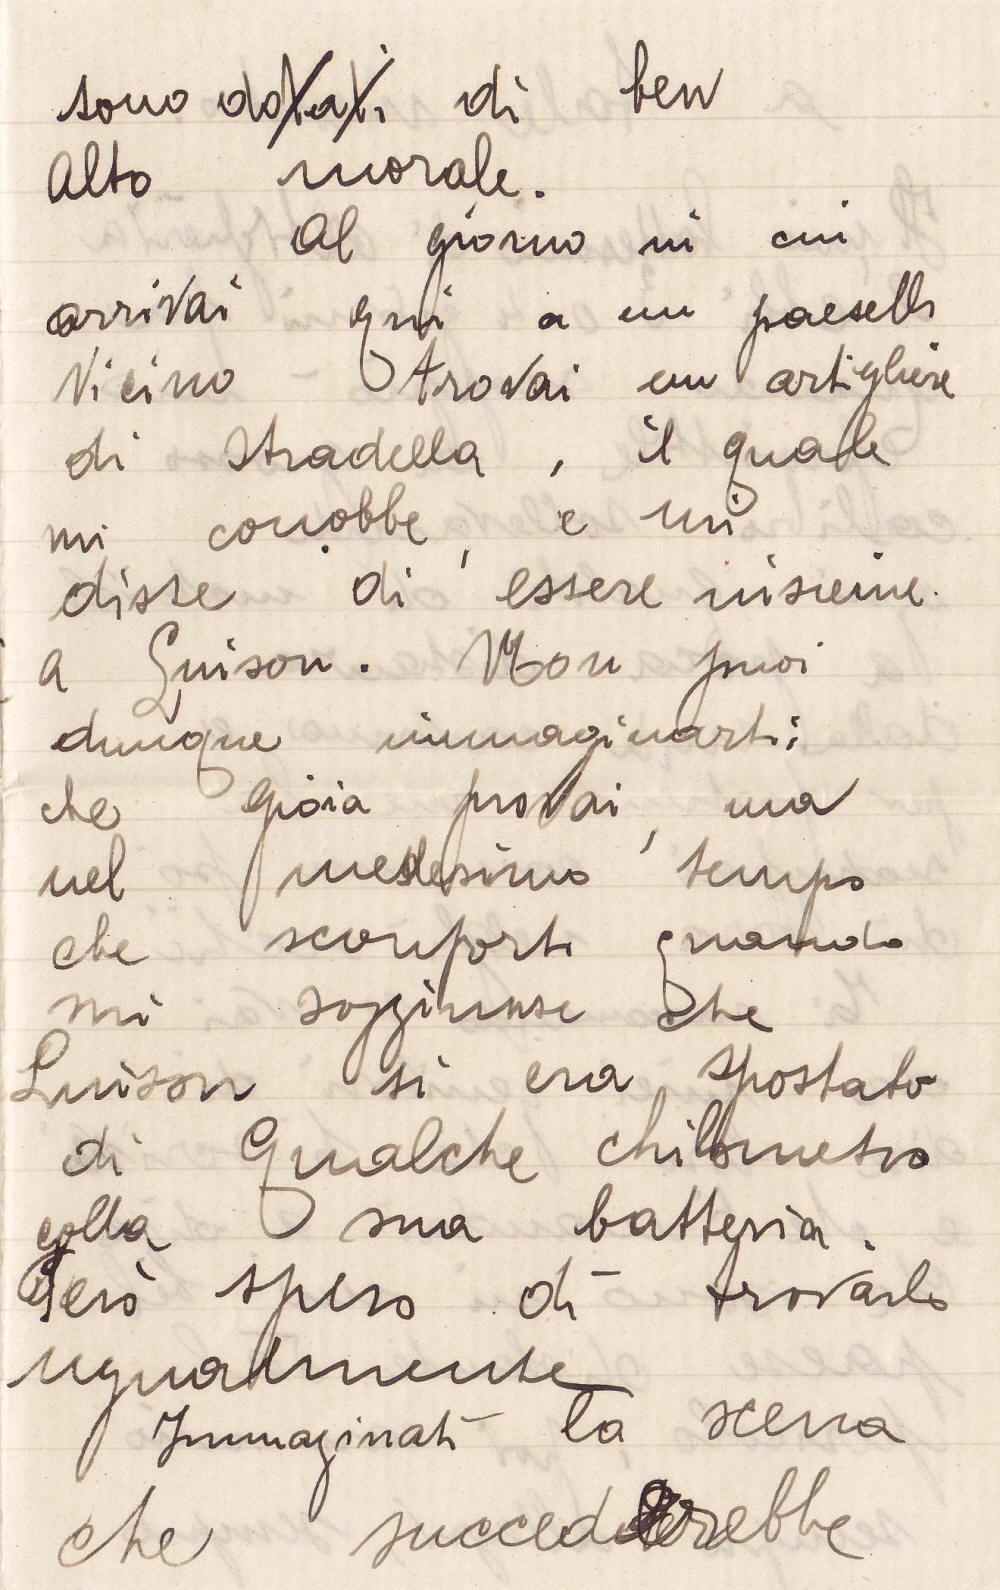 sono dotati di ben
alto morale.
Al giorno in cui
arrivai qui a un paesello
vicino - trovai un artigliere
di Stradella, il quale
mi conobbe, e mi
disse di essere insieme
a Luison. Non puoi
dunque immaginarti
che gioia provai, ma
nel medesimo tempo
che sconforto quando
mi soggiunse che
Luison si era spostato
di qualche chilometro
colla sua batteria.
Però spero di trovarlo
ugualmente
Immaginati la scena
che succederebbe